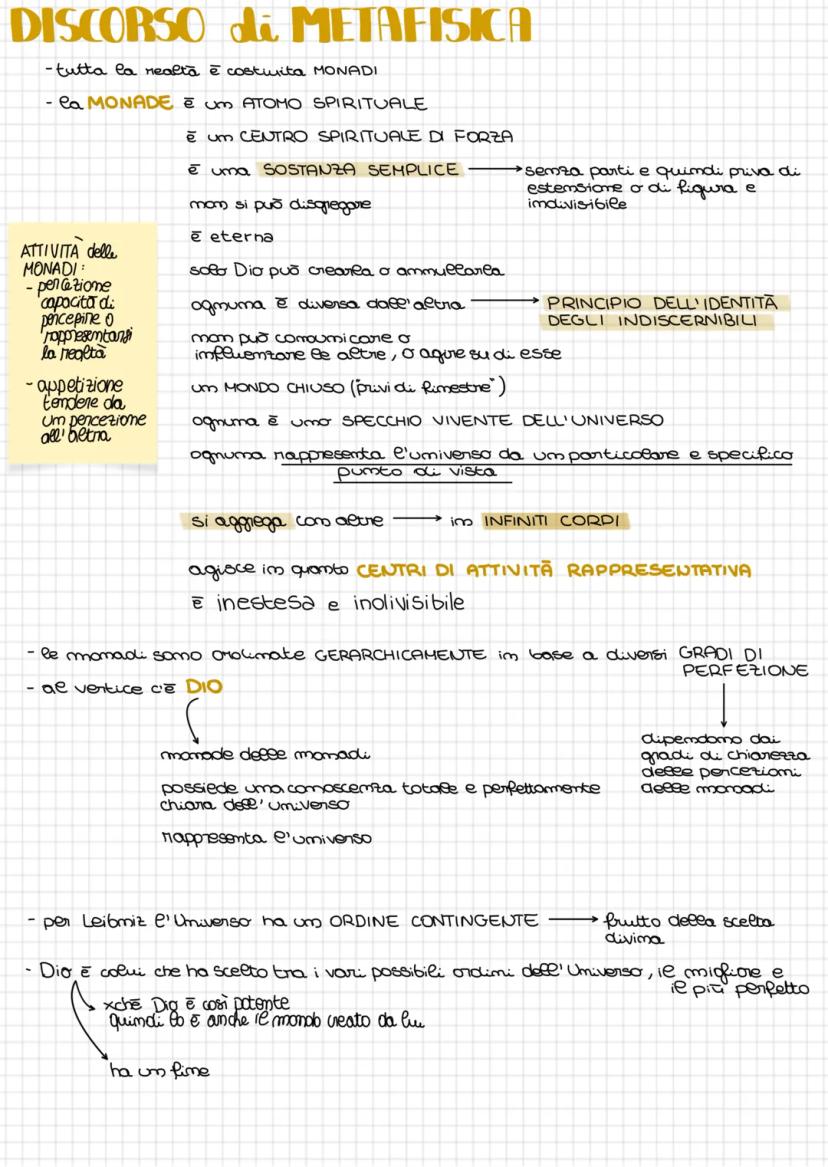 DISCORSO di METAFISICA
- tutta la realtà è costituita MONADI
- la MONADE è un ATOMO SPIRITUALE
è un CENTRO SPIRITUALE DI FORZA
è una SOSTANZA SEMPLICE → senza parti e quindi priva di
estensione o di figura e
indivisibile
non si può disgregare
è eterna
solo Dio può crearla o annullarla
ognuna è diversa dall'altra → PRINCIPIO DELL'IDENTITÀ
DEGLI INDISCERNIBILI
non può comunicare o
influenzare le altre, o agire su di esse
un MONDO CHIUSO ("privi di finestre")
ognuna è uno SPECCHIO VIVENTE DELL'UNIVERSO
ognuna rappresenta l'universo da un particolare e specifico
punto di vista
ATTIVITÀ delle
MONADI:
- percezione
capacità di
percepire o
rappresentarsi
la realtà
- appetizione
tendere da
un percezione
all'altra
si aggrega con altre → in INFINITI CORPI
agisce in quanto CENTRI DI ATTIVITÀ RAPPRESENTATIVA
è inestesa e indivisibile
- le monadi sono ordinate GERARCHICAMENTE in base a diversi GRADI DI
PERFEZIONE
- al vertice c'è DIO
dipendono dai
gradi di chiarezza
delle percezioni
delle monadi
monade delle monadi
possiede una conoscenza totale e perfettamente
chiara dell'universo
rappresenta l'universo
- per Leibniz l'Universo ha un ORDINE CONTINGENTE → frutto della scelta
divina
- Dio è colui che ha scelto tra i vari possibili ordini dell'Universo, il migliore e
il più perfetto
xchè Dio è così potente
quindi lo è anche il mondo creato da lui
ha un fine